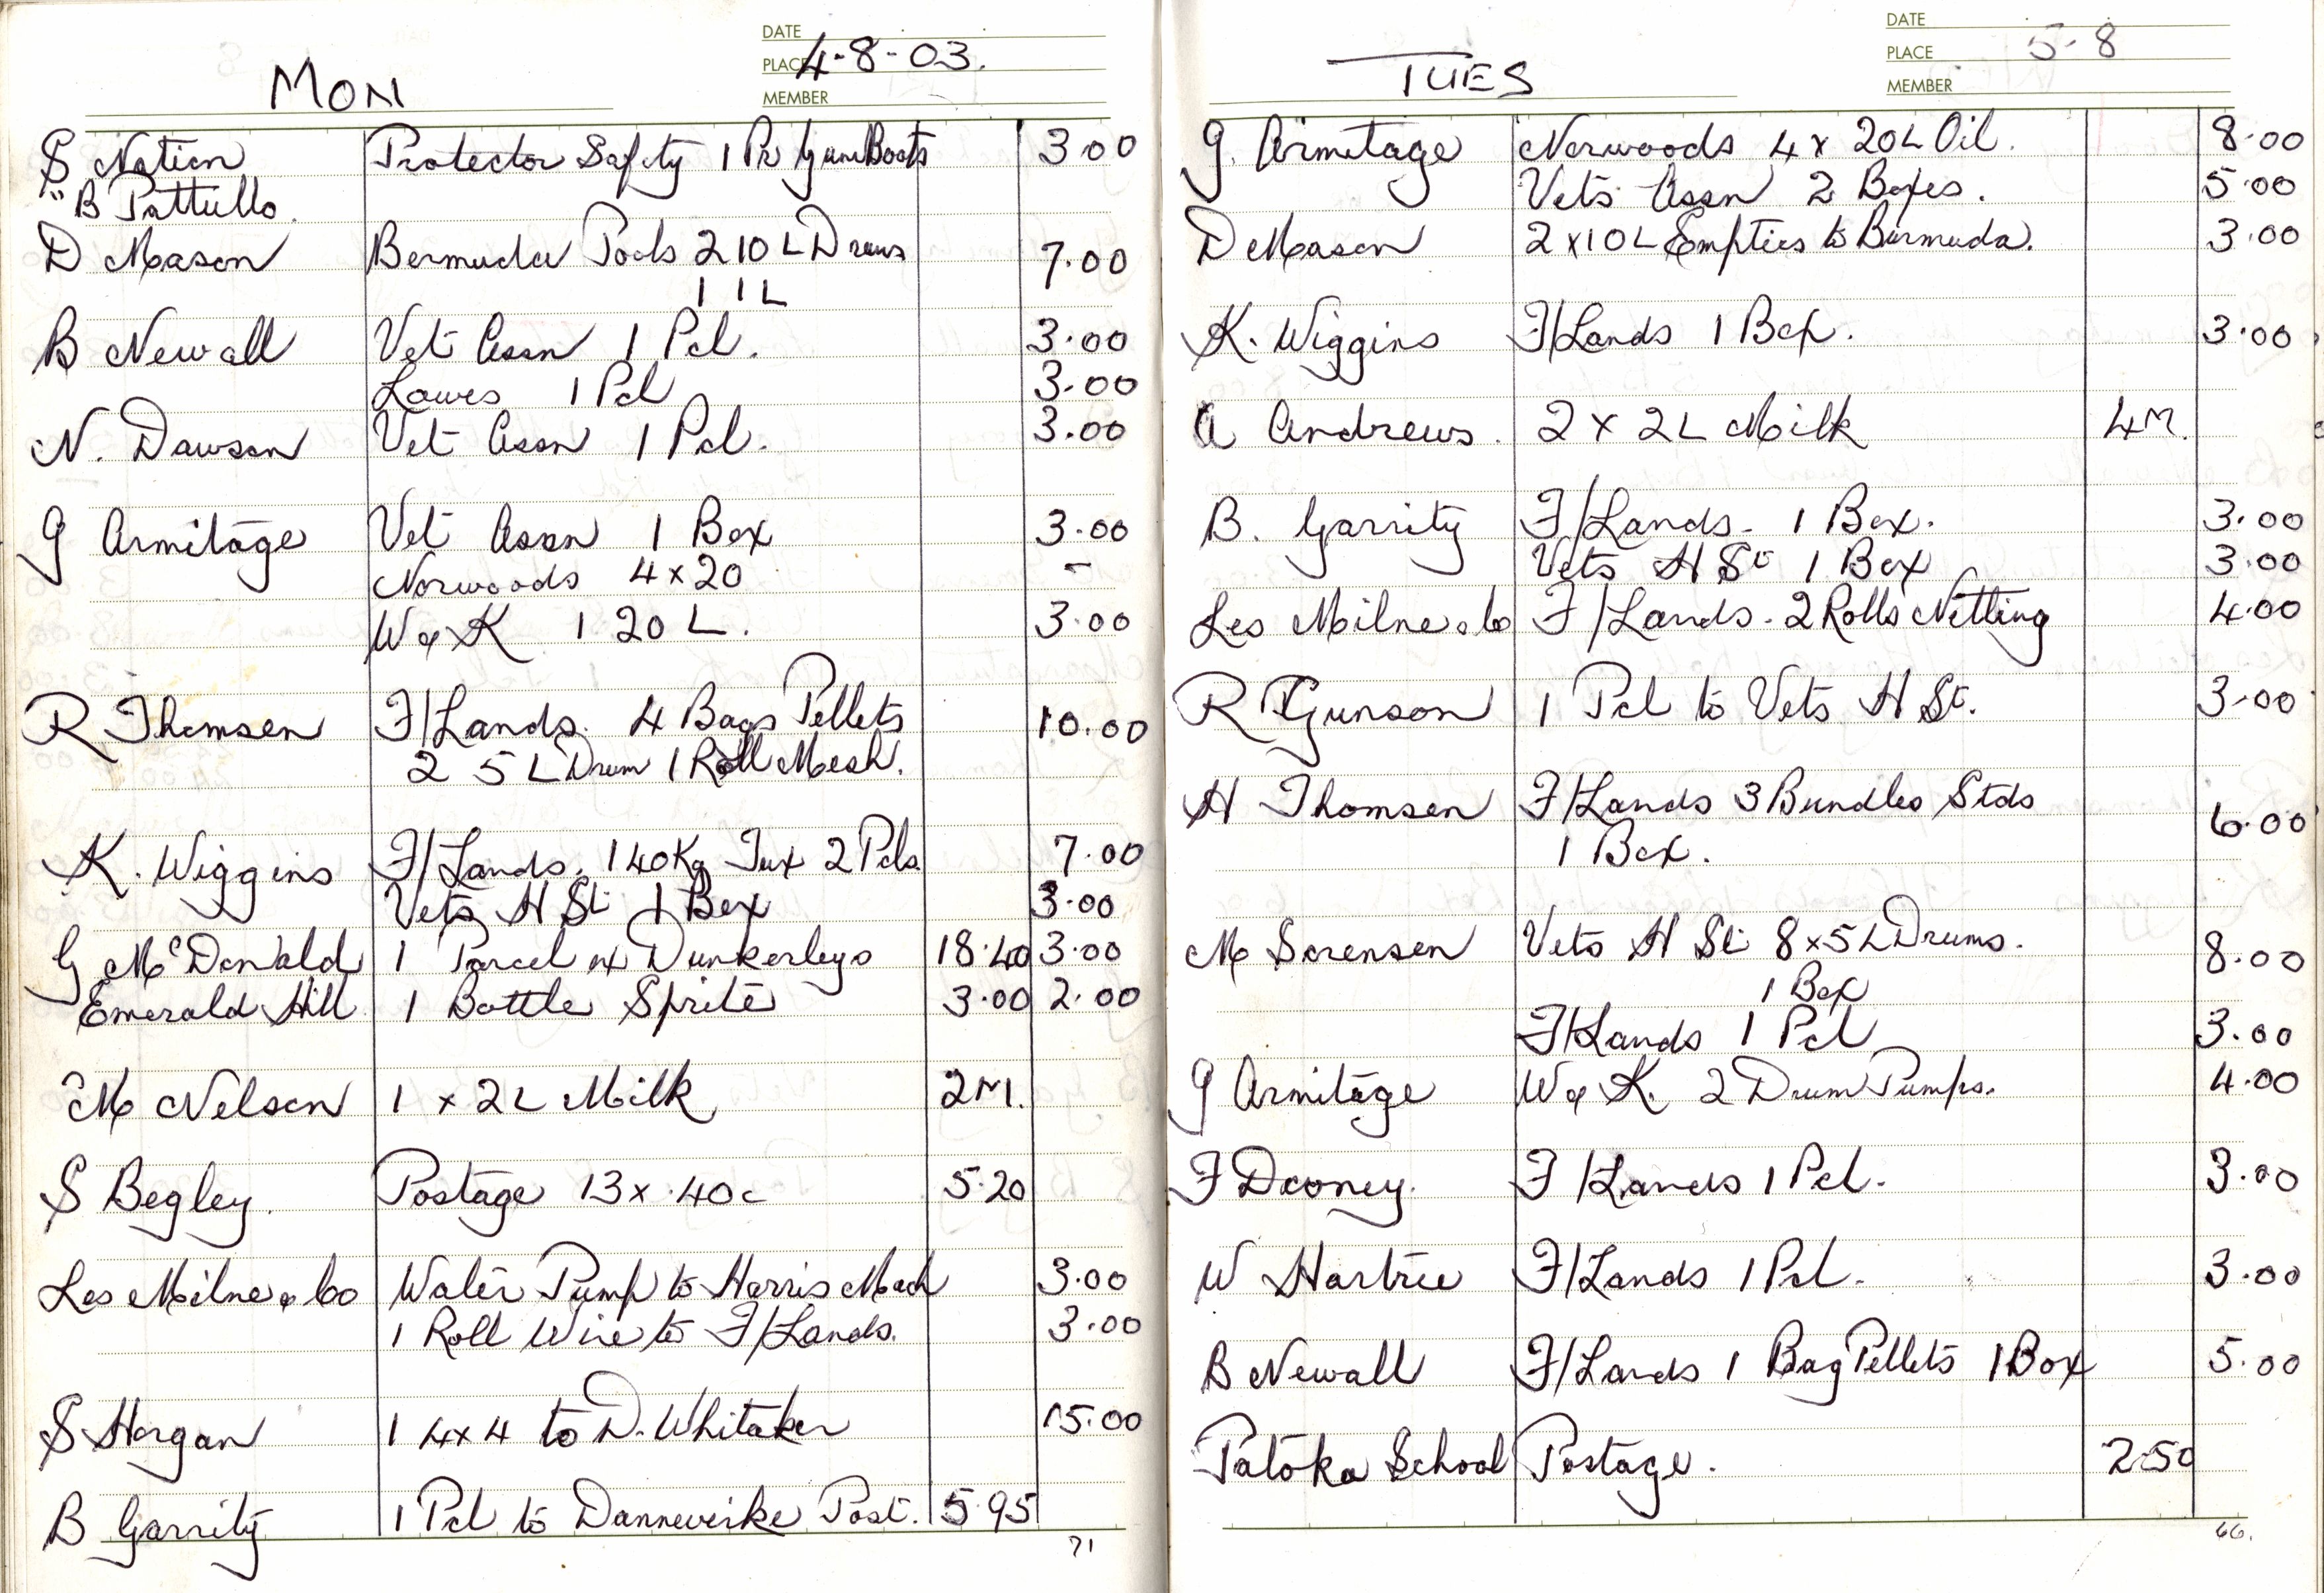 DATE
PLACE 4-8-03.
MEMBER
MON
S Nation Protector Safety 1 Pr GumBoots 3.00
" B Pattullo.
D Mason Bermuda Pools 2 10 L Drums 7.00
1 1 L
B Newall Vet Assn 1 Pcl. 3.00
Lowes 1 Pcl 3.00
N. Dawson Vet Assn 1 Pcl. 3.00
G Armitage Vet Assn 1 Box 3.00
Norwoods 4x20 -
W & K 1 20 L. 3.00
R Thomsen F/Lands. 4 Bags Pellets 10.00
2 5 L Drum 1 Roll Mesh.
K. Wiggins F/Lands. 1 40Kg Tux 2 Pcls 7.00
Vets H St 1 Box 3.00
G McDonald 1 Parcel ex Dunkerleys 18.40 3.00
Emerald Hill 1 Bottle Sprite 3.00 2.00
M Nelson 1 x 2L Milk 2M.
S Begley. Postage 13 x .40c 5.20
Les Milne & Co Water Pump to Harris Mach 3.00
1 Roll Wire to F/Lands. 3.00
S Horgan 1 4x4 to D. Whitaker 15.00
B Garrity 1 Pcl to Dannevirke Post. 5.95
71
DATE
PLACE 5-8
MEMBER
TUES
G. Armitage Norwoods 4 x 20L Oil. 8.00
Vets Assn 2 Boxes. 5.00
D Mason 2 x 10 L Empties to Bermuda. 3.00
K. Wiggins F/Lands 1 Box. 3.00
A Andrews. 2 x 2L Milk 4M.
B. Garrity F/Lands. 1 Box. 3.00
Vets H St 1 Box 3.00
Les Milne & Co F/Lands. 2 Rolls Netting 4.00
R Gunson 1 Pcl to Vets H St. 3.00
H Thomsen F/Lands 3 Bundles Stds 6.00
1 Box.
M Sorensen Vets H St 8x5 L Drums. 8.00
1 Box
F/Lands 1 Pcl 3.00
G Armitage W & K. 2 Drum Pumps. 4.00
F Dooney. F/Lands 1 Pcl. 3.00
W Hartree F/Lands 1 Pcl. 3.00
B Newall F/Lands 1 Bag Pellets 1 Box 5.00
Patoka School Postage. 2.50
66.